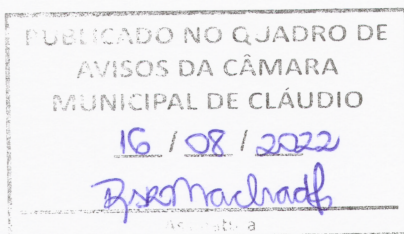 PUBLICADO NO QUADRO DE
AVISOS DA CÂMARA
MUNICIPAL DE CLÁUDIO
16 / 08 / 2022
Assinatura